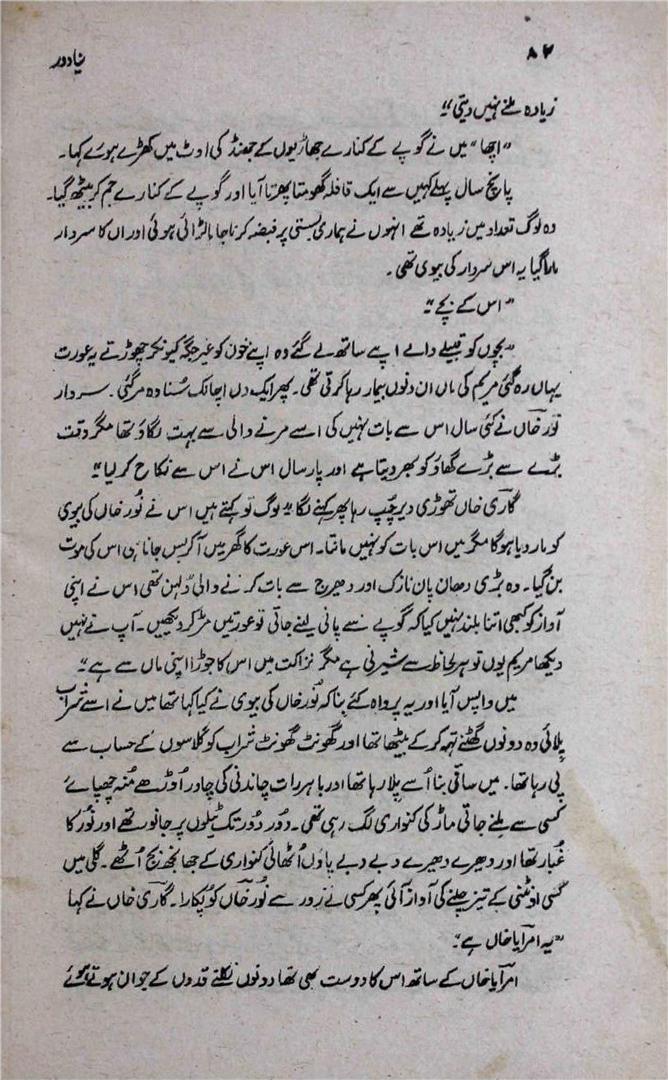 ۸۲
نیا دور
زیادہ ملنے نہیں دیتی"۔
"اچھا" میں نے گوپے کے کنارے جھاڑیوں کے جھنڈ کی اوٹ میں کھڑے ہوئے کہا۔
پانچ سال پہلے کہیں سے ایک قافلہ گھومتا پھرتا آیا اور گوپے کے کنارے جم کر بیٹھ گیا۔
وہ لوگ تعداد میں زیادہ تھے انہوں نے ہماری بستی پر قبضہ کرنا چاہا لڑائی ہوئی اور ان کا سردار
مارا گیا یہ اس سردار کی بیوی تھی۔
"اس کے بچے"۔
"بچوں کو قبیلے والے اپنے ساتھ لے گئے وہ اپنے خون کو غیر جگہ کیونکر چھوڑتے یہ عورت
یہاں رہ گئی مریم کی ماں ان دنوں بیمار رہا کرتی تھی۔ پھر ایک دن اچانک سُنا وہ مر گئی۔ سردار
نور خاں نے کئی سال اس سے بات نہیں کی اسے مرنے والی سے بہت لگاؤ تھا مگر وقت
بڑے سے بڑے گھاؤ کو بھر دیتا ہے اور پار سال اس نے اس سے نکاح کر لیا"۔
گاری خاں تھوڑی دیر چُپ رہا پھر کہنے لگا "لوگ تو کہتے ہیں اس نے نور خاں کی بیوی
کو مار دیا ہوگا مگر میں اس بات کو نہیں مانتا۔ اس عورت کا گھر میں آ کر بس جانا ہی اس کی موت
بن گیا۔ وہ بڑی دھان پان نازک اور دھیرج سے بات کرنے والی دلہن تھی اس نے اپنی
آواز کو کبھی اتنا بلند نہیں کیا کہ گوپے سے پانی لینے جاتی تو عورتیں مڑ کر دیکھیں۔ آپ نے نہیں
دیکھا مریم یوں تو ہر لحاظ سے شیرنی ہے مگر نزاکت میں اس کا جوڑا اپنی ماں سے ہے"۔
میں واپس آیا اور یہ پرواہ کئے بنا کہ نور خاں کی بیوی نے کیا کہا تھا میں نے اسے شراب
پلائی وہ دونوں گھٹنے تہہ کر کے بیٹھا تھا اور گھونٹ گھونٹ شراب کو گلاسوں کے حساب سے
پی رہا تھا۔ میں ساقی بنا اُسے پلا رہا تھا اور باہر رات چاندنی کی چادر اوڑھے مُنہ چھپائے
کسی سے ملنے جاتی ماڑ کی کنواری لگ رہی تھی۔ دُور دُور تک ٹیلوں پر جانور تھے اور نُور کا
غبار تھا اور دھیرے دھیرے دبے دبے پاؤں اُٹھاتی کنواری کے جھانجھ بج اُٹھے۔ گلی میں
کسی اونٹنی کے تیز چلنے کی آواز آئی پھر کسی نے زور سے نور خاں کو پکارا۔ گاری خاں نے کہا
"یہ امرایا خاں ہے"۔
امرایا خاں کے ساتھ اس کا دوست بھی تھا دونوں نکلتے قدوں کے جوان ہوتے ہوئے